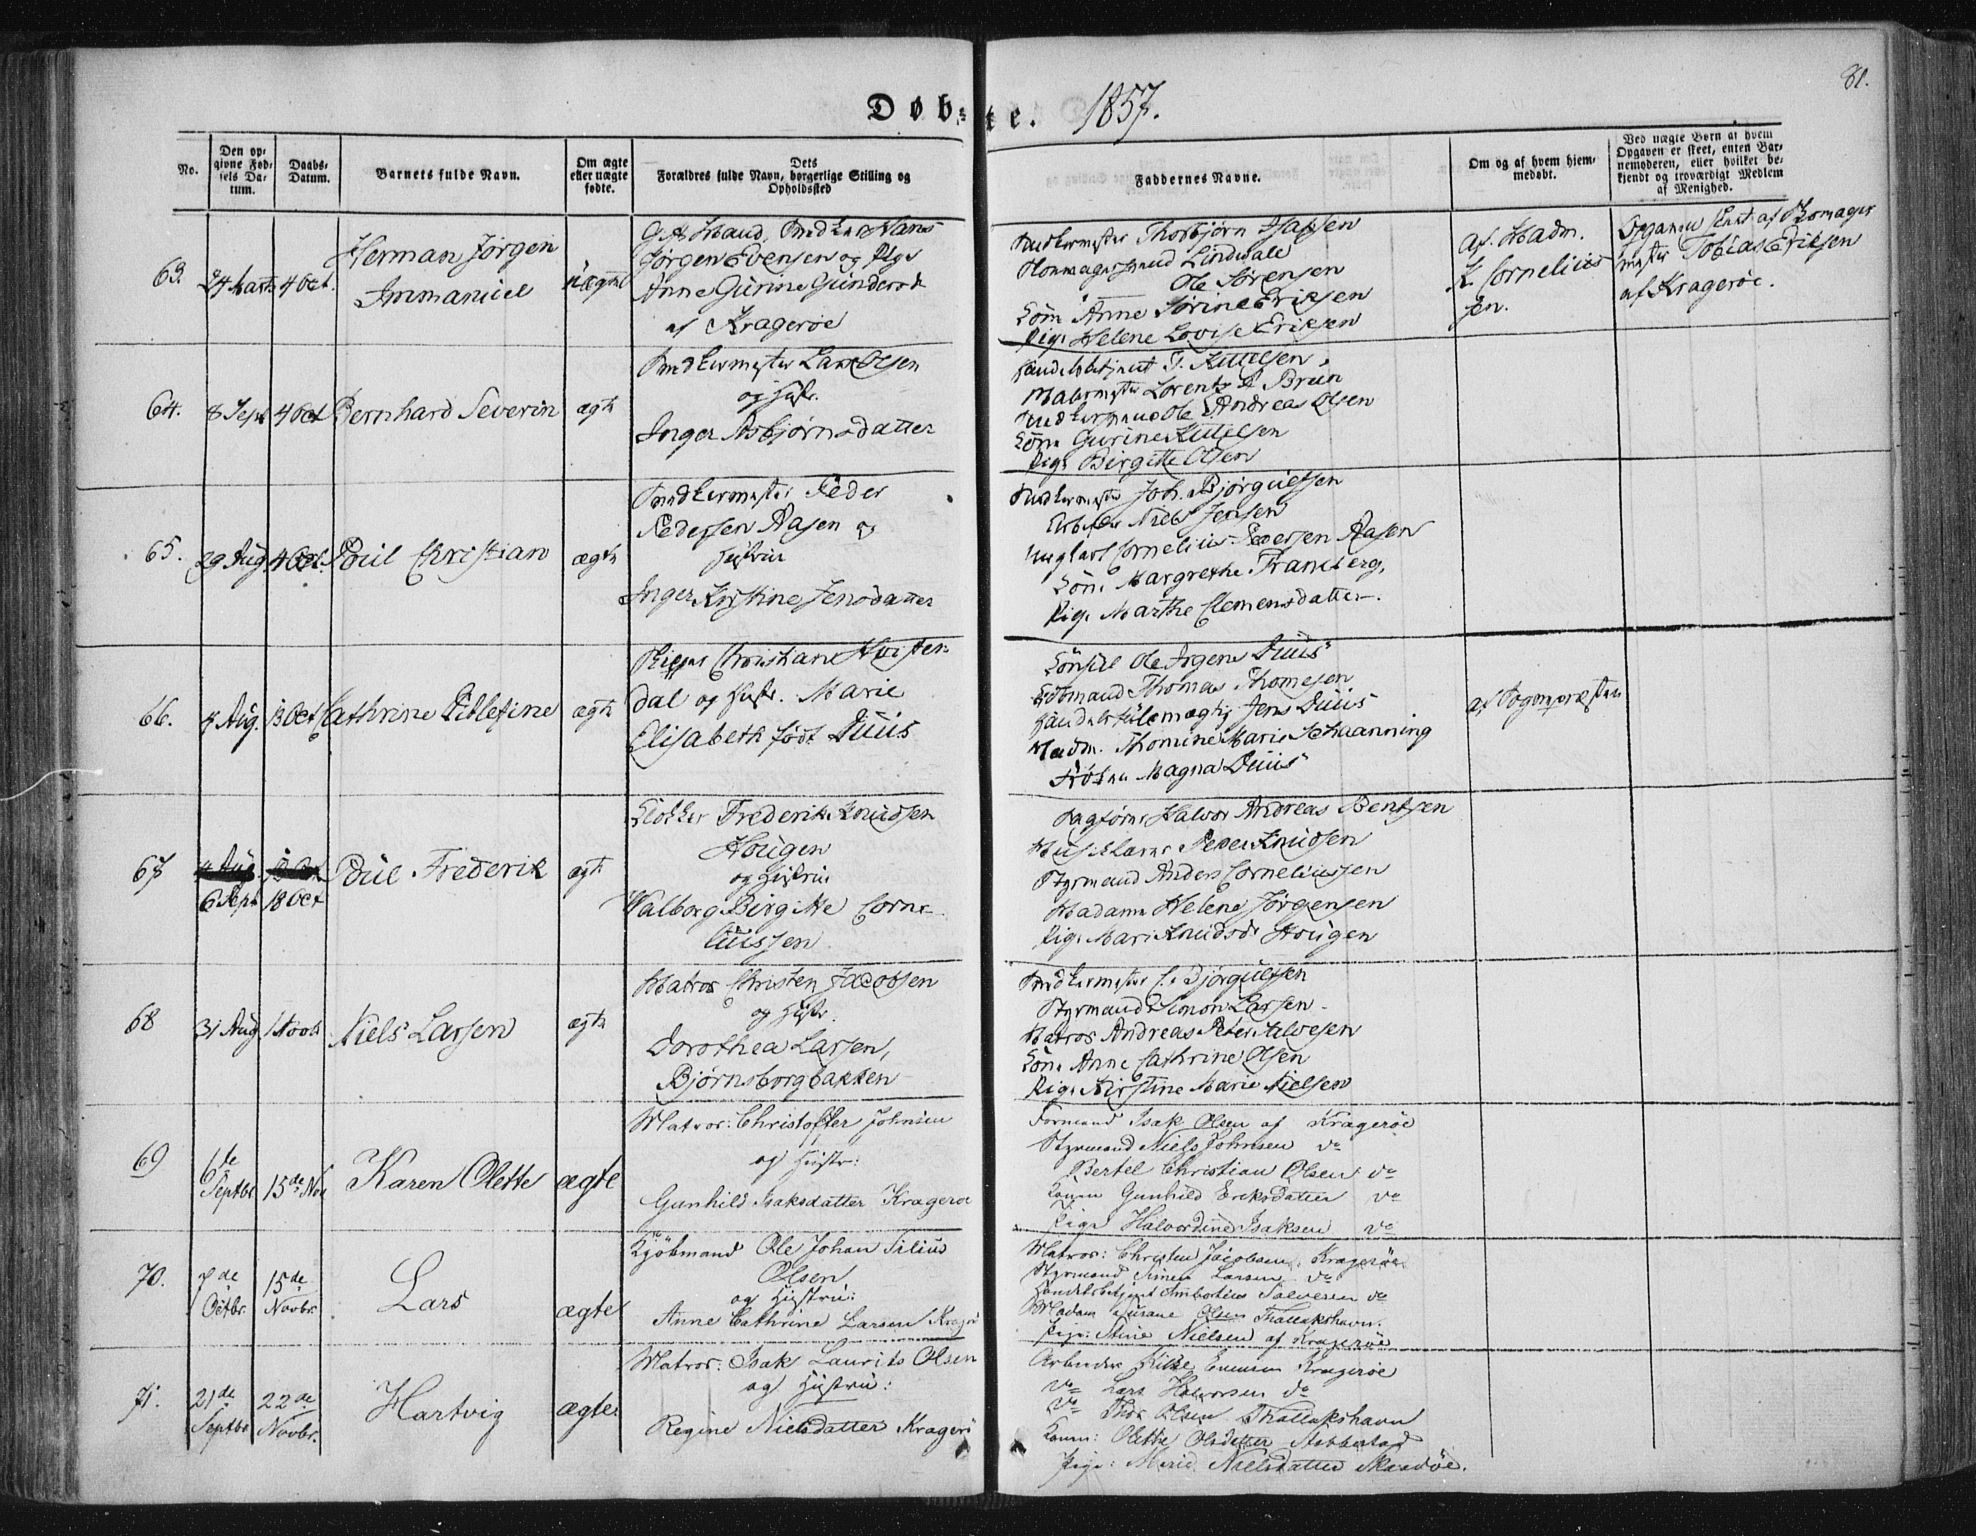 81.
Døbte. 1857.
No.
Den opgivne Fødsels Datum.
Daabs-Datum.
Barnets fulde Navn.
Om ægte eller uægte fødte.
Dets Forældres fulde Navn, borgerlige Stilling og Opholdssted
Faddernes Navne.
Om og af hvem hjemmedøbt.
Ved uægte Børn af hvem Opgaven er skeet, enten Barnemoderen, eller hvilket bekjendt og troværdigt Medlem af Menighed.
63. 4 Oct.
Herman Jørgen
Immanuel
Jørgen Evensen og Pige
Anne Gurine Gundersd
af Kragerøe
Thorbjørn
Lindvale
Ole Sørensen
Anne Sørine Eriksen
Pige Helene Lovise Eriksen
Af. Madm.
K. Cornelius
sen.
Tobias Eriksen
af Kragerøe.
64. 8 Sept 4 Oct Bernhard Severin ægte
Lars Olsen
og Hustr.
Inger Asbjørnsdatter
T. Kittelsen.
Malermester Lorentz A Bruun
Ole Andreas Olsen
Kone Gurine Kittelsen
Pige Birgitte Olsen
65. 29 Aug. 4 Oct. Poul Christian ægte
Peder
Pedersen Aasen og
Hustrue
Inger Kirstine Jensdatter
Joh. Bjørgulfsen
Niels Jensen
Cornelius Pedersen Aasen
Kone Margrethe Tramberg.
Pige Marthe Clemensdatter.
66. 4 Aug. 13 Oct Cathrine Ditlefine ægte
Christian Hvisten-
dal og Hustr. Marie
Elisabeth født Duus
Consul Ole Jrgens Duus
Thomas Thomesen
Handelsfuldmægtig Jens Duus
Madm. Thomine Marie Schaanning
Frøken Magna Duus
af Sognepræsten
67 4 Aug 13 Oct Poul Frederik ægte
6 Sept 18 Oct
Klokker Frederik Knudsen
Hougen
og Hustrue
Walborg Birgitte Corne-
liussen
Halvor Andreas Bentsen
Peder Knudsen
Styrmand Anders Corneliussen
Madame Helene Jørgensen
Pige Mari Knudsd. Hougen
68 31 Aug 1 Novb Niels Larsen ægte
Matros Christen Jacobsen
og Hustr.
Dorothea Larsen,
Bjørnsborgbakken
Bjørgulfsen
Styrmand Simon Larsen
Matros Andreas Peter Alvesen
Kone Anne Cathrine Olsen
Pige Kirstine Marie Nielsen
69 6te Septbr 15de Nov Karen Olette ægte
Matros: Christoffer Johnsen
og Hustr:
Gunhild Isaksdatter Kragerøe
Formand Isak Olsen af Kragerøe
Styrmand Niels Johnsen do
Bertel Christian Olsen do
Konen Gunhild Eriksdatter do
Pige Halvordine Isaksen do
70. 7de Octbr. 15de Novbr. Lars ægte
Kjøbmand Ole Johan Tilius
Olsen
og Hustru:
Anne Cathrine Larsen Kragerø
Matros: Christen Jacobsen, Kragerøe
Styrmand Simen Larsen do
Handelsbetjent Ambortius Salvesen do
Madam Susane Olsen Thallakshavn.
Pige: Stine Nielsen af Kragerøe
71. 21de Septbr 22de Novbr. Hartvig ægte
Matros: Isak Laurits Olsen
og Hustru:
Regine Nielsdatter Kragerø
Arbeider Kragerøe
do Lars Halvorsen do
do Thor Olsen Thallakshavn
Konen: Olette Olsdatter Stabbestad
Pige: Marie Nielsdatter Skaadøe.